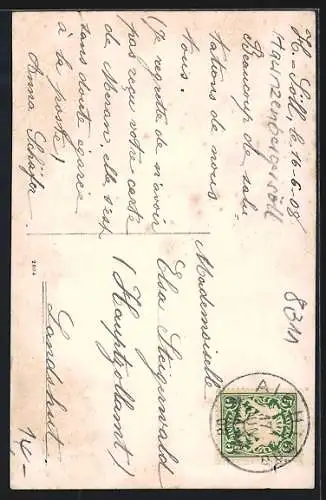 H-Söll, le 16-6-08
Haunzenbergersöll
Beaucoup de salu-
tations de nous
tous.
(Je regrette de n'avoir
pas reçu votre carte
de Meran, elle s'est
sans doute égarée
à la poste)
Anna Schäfer
Mademoiselle
Elsa Steigerwald
(Hauptzollamt)
Landshut.
8311
14-
5 5